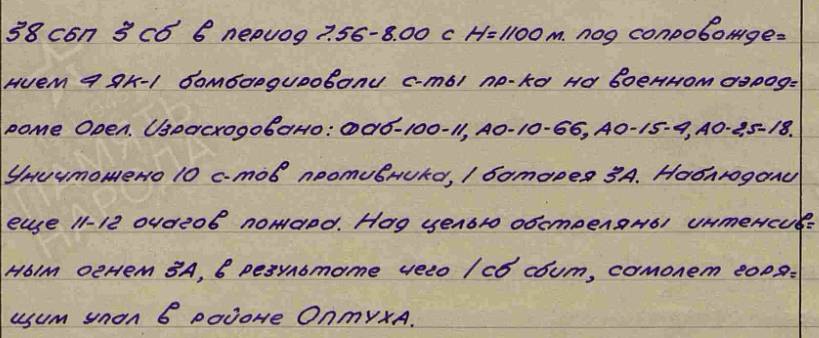 38 СБП 3 СБ в период 7.56-8.00 с Н=1100 м. под сопровожде=
нием 4 ЯК-1 бомбардировали с-ты пр-ка на военном аэрод=
роме Орел. Израсходовано: ФАБ-100-11, АО-10-66, АО-15-4, АО-2,5-18.
Уничтожено 10 с-тов противника, 1 батарея ЗА. Наблюдали
еще 11-12 очагов пожара. Над целью обстреляны интенсив=
ным огнем ЗА, в результате чего 1 сб сбит, самолет горя=
щим упал в районе ОПТУХА.
ПАМЯТЬ
НАРОДА